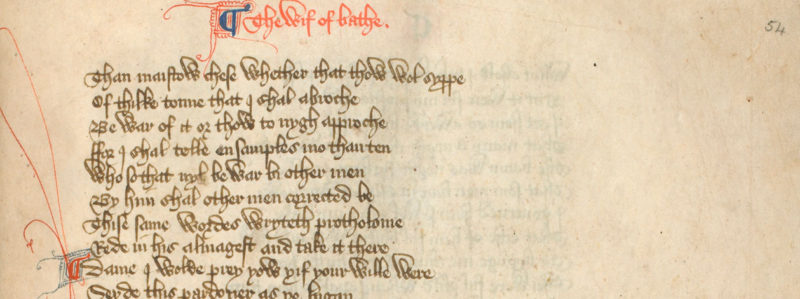 The wif of bathe.
54
Than maistow chese whether that thow wol syppe
Of thilke tonne that I shal abroche
Be war of it or thow to nygh approche
ffor I shal telle ensamples mo than ten
Who so that nyl be war bi other men
By hym shal other men corrected be
Thise same wordes wryteth protholome
Rede in his almagest and take it there
Dame I wolde prey yow yif your wille were
Seyde this pardoner as ye bigan